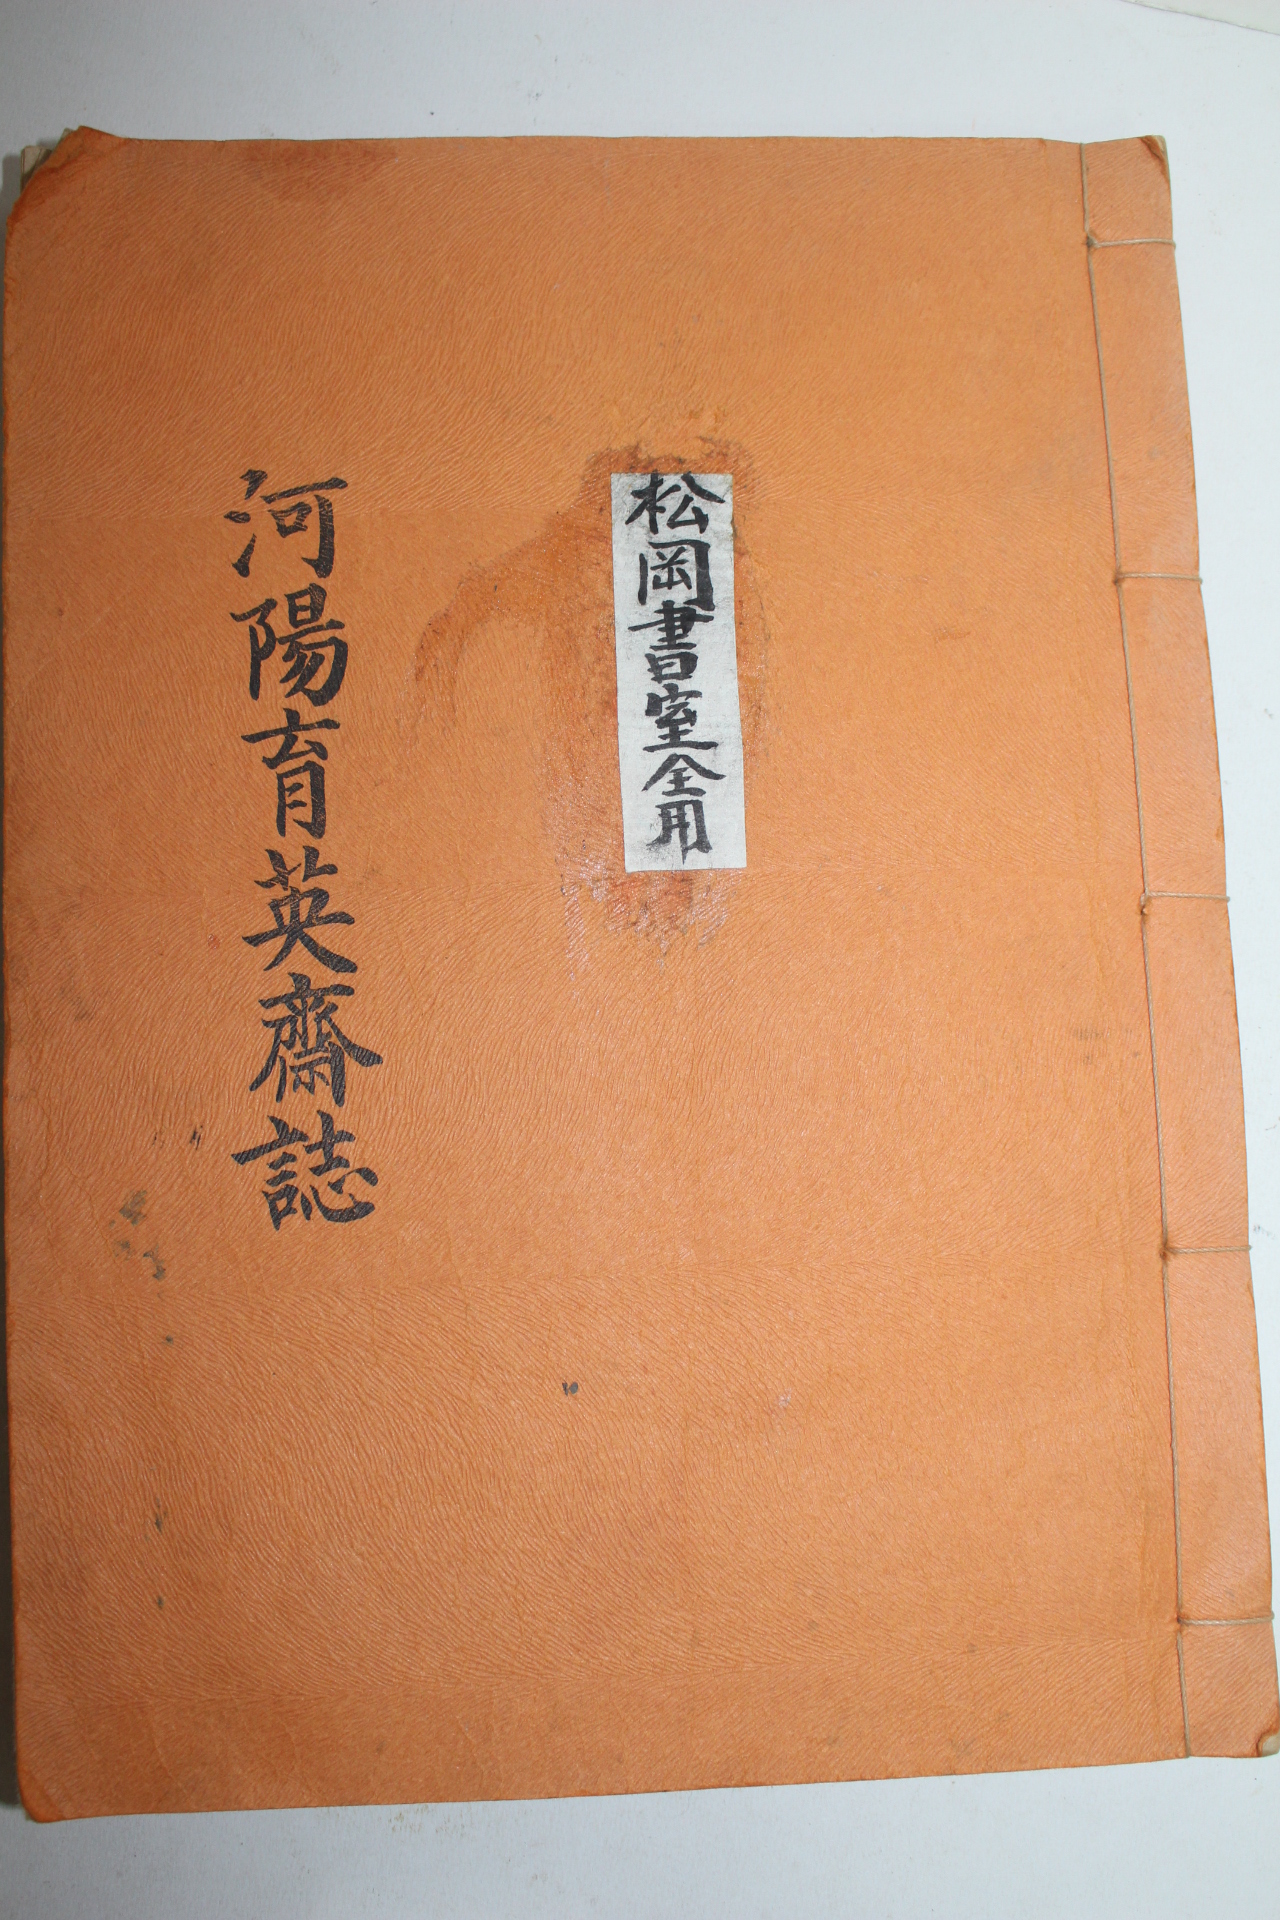 松岡書室全用
河陽育英齋誌